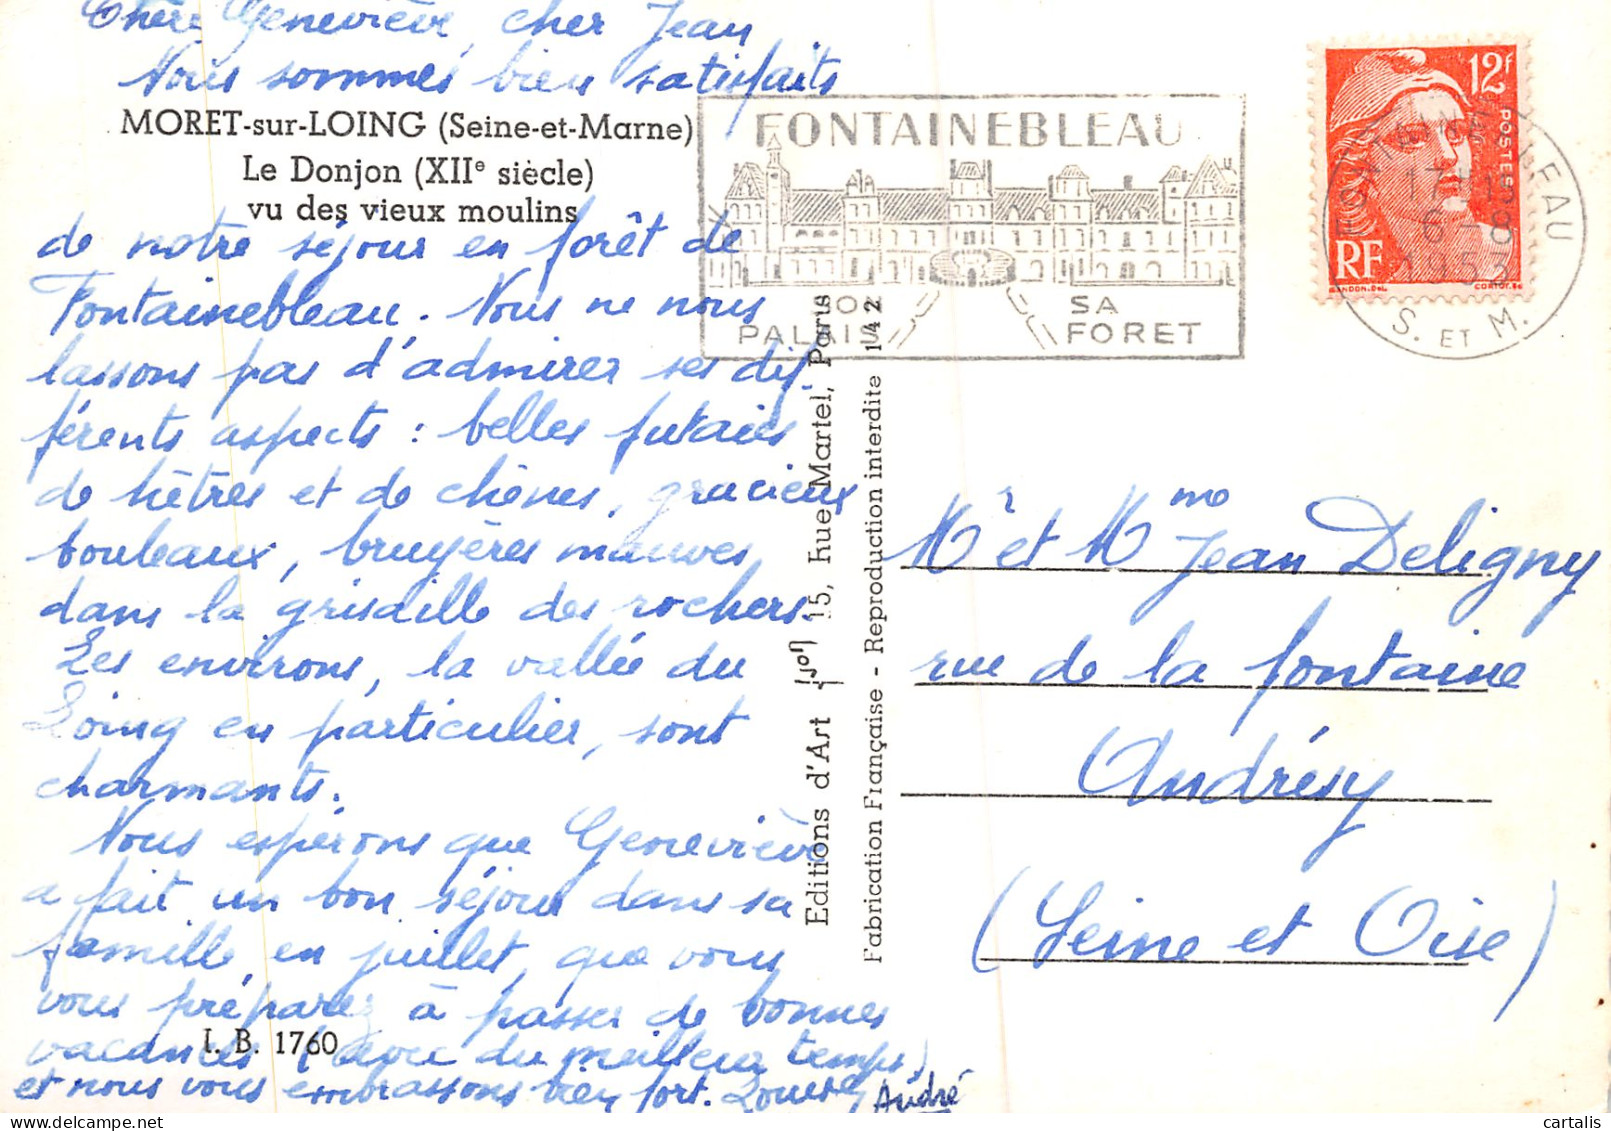 Chère Geneviève, cher Jean
Nous sommes bien satisfaits
MORET-sur-LOING (Seine-et-Marne)
Le Donjon (XIIe siècle)
vu des vieux moulins
de notre séjour en forêt de
Fontainebleau. Nous ne nous
lassons pas d'admirer ses dif
férents aspects : belles futaies
de hêtres et de chênes, gracieux
bouleaux, bruyères mauves
dans la grisaille des rochers.
Les environs, la vallée du
Loing en particulier, sont
charmants.
Nous espérons que Geneviève
a fait un bon séjour dans sa
famille, en juillet, que vous
vous préparez à passer de bonnes
vacances (avec du meilleur temps)
et nous vous embrassons bien fort. Louise
André
I. B. 1760
Editions d'Art Yvon 15, rue Martel, Paris
Fabrication Française - Reproduction interdite 142
FONTAINEBLEAU
SON
PALAIS
SA
FORET
12f
POSTES
RF
GANDON.DEL
CORTOT.SC
FONTAINEBLEAU
17H15
6-8
1953
S. ET M.
Mr et Mme Jean Deligny
rue de la fontaine
Andrésy
(Seine et Oise)
cartalis
www.delcampe.net